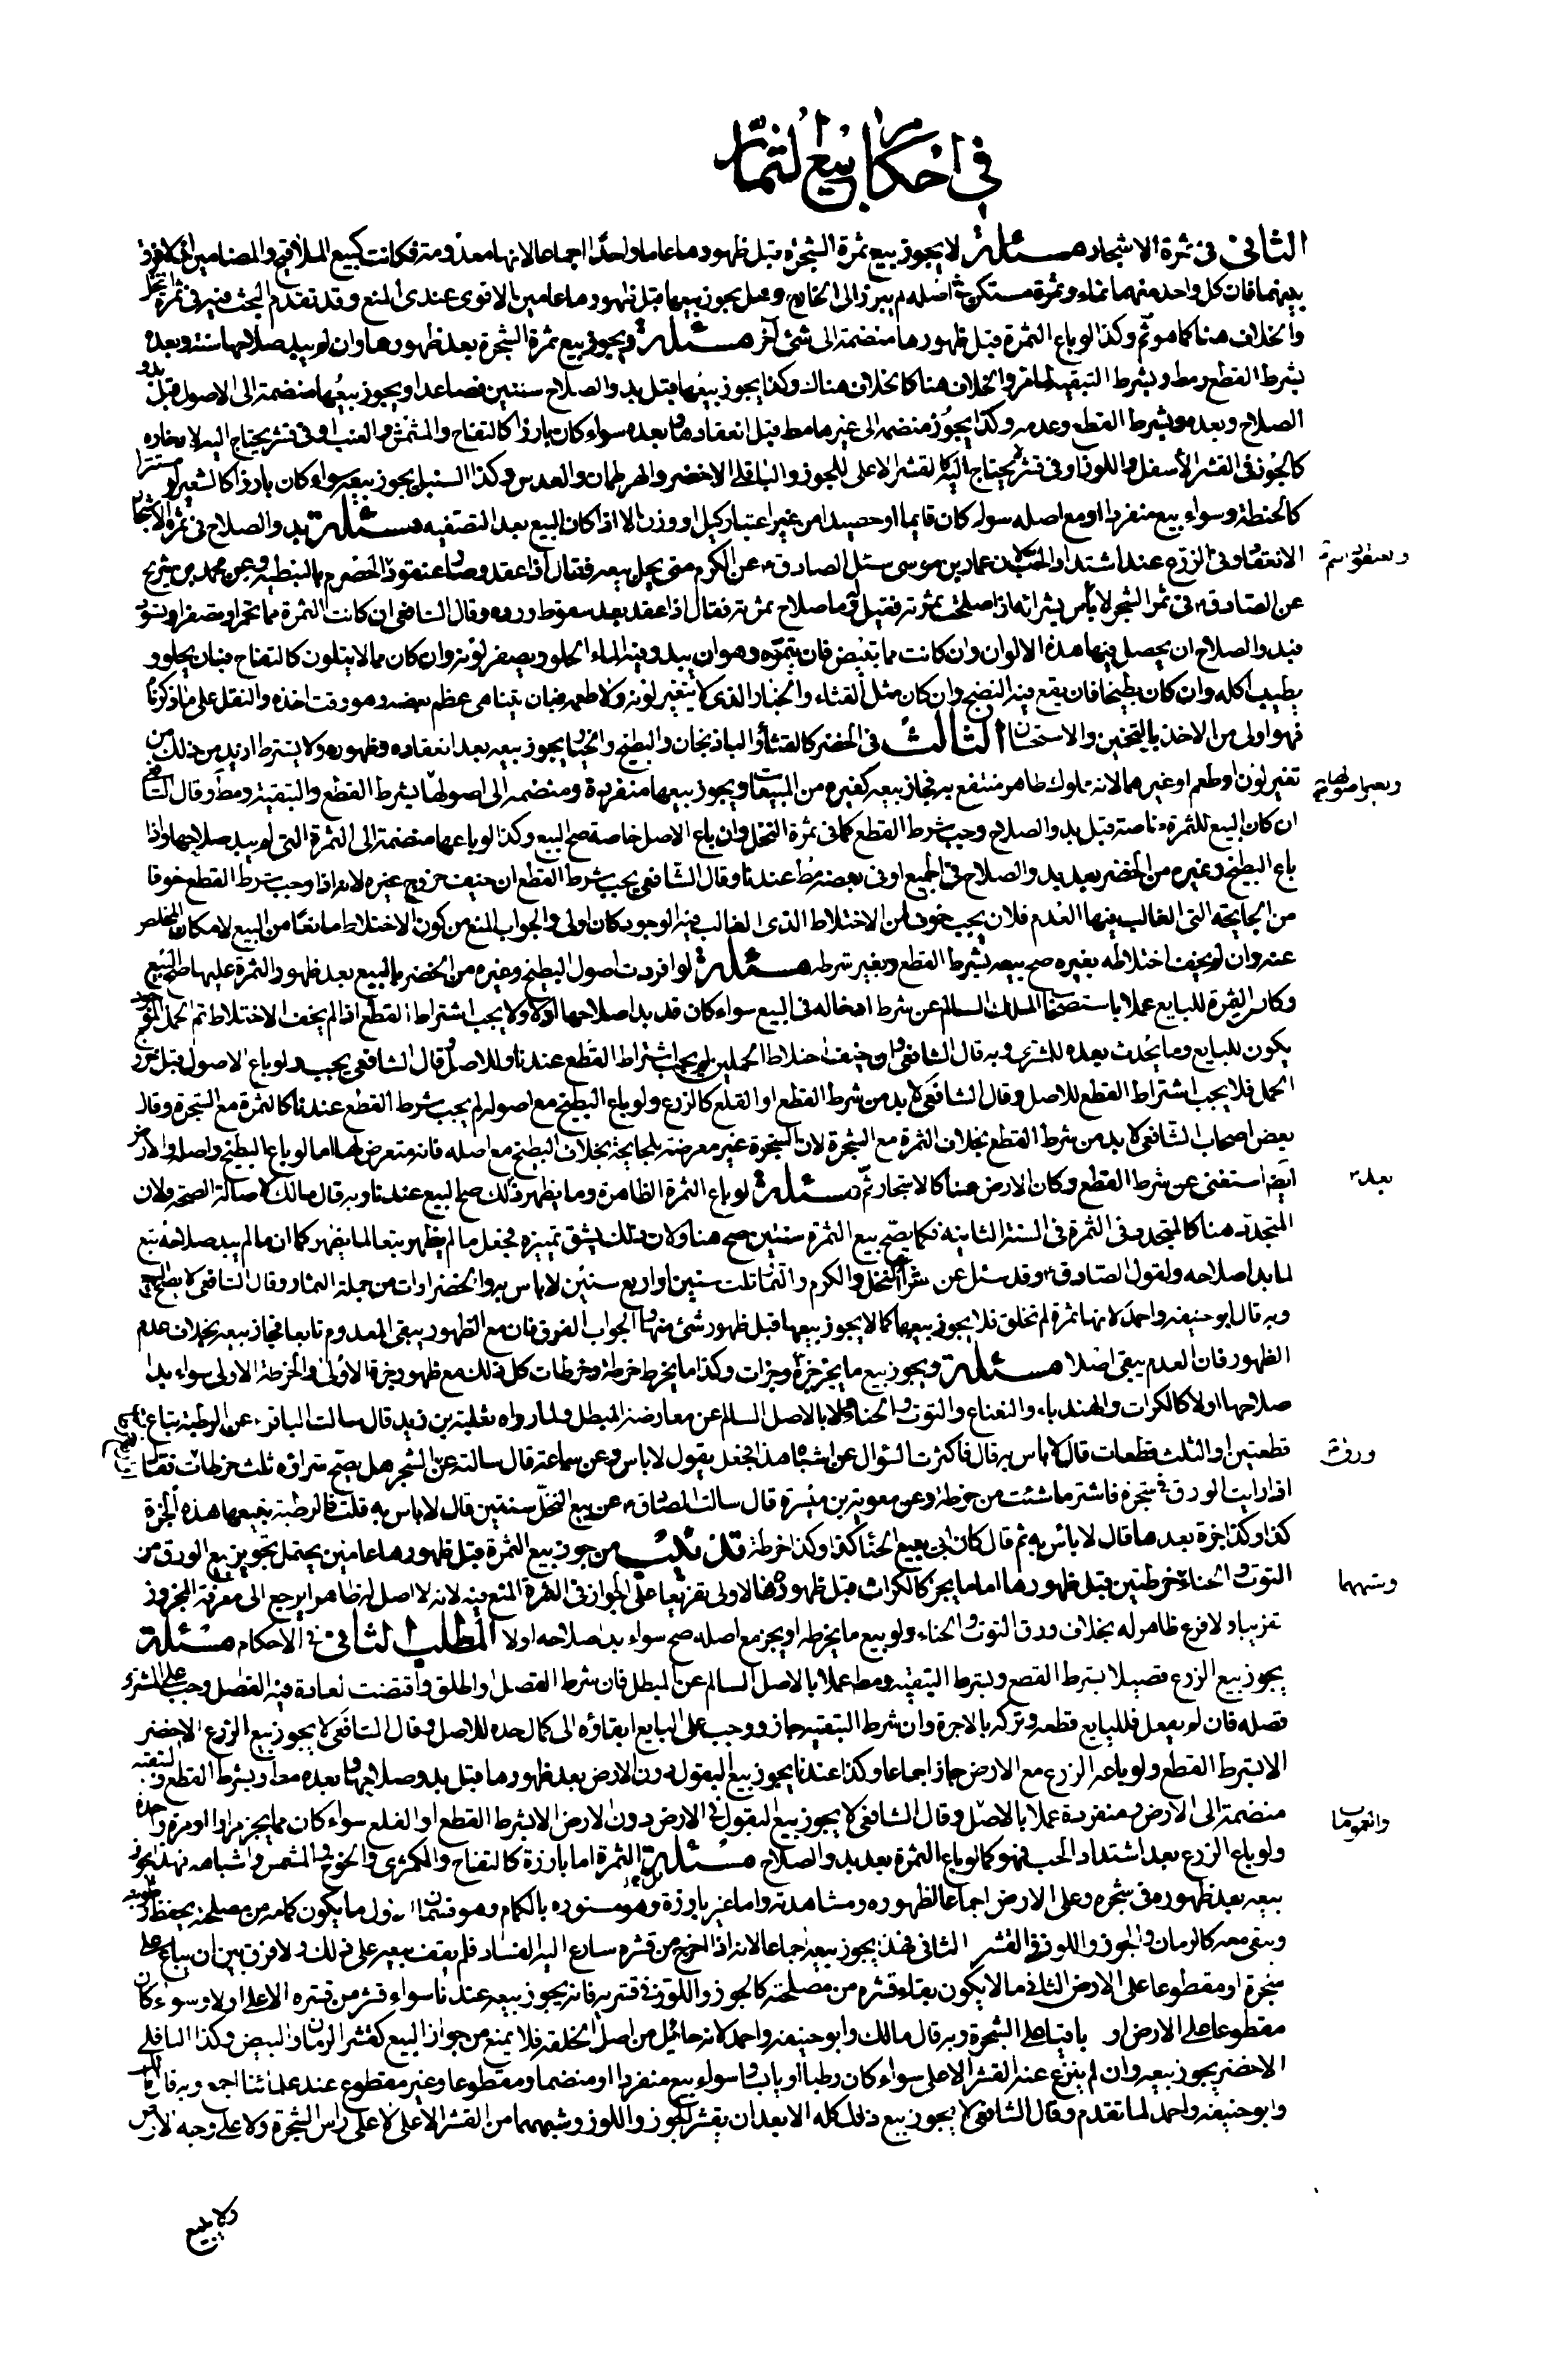 في احكام بيع الثمار
الثاني في ثمرة الاشجار مسئلة لا يجوز بيع ثمرة الشجرة قبل ظهورها عاما واحدًا اجماعا لانها معدومة فكانت كبيع الملاقيح والمضامين
فان كل واحد منهما نماء وثمرة مستكن في اصله لم يبرز الى الخارج وهل يجوز بيعها قبل ظهورها عامين الاقوى عندي المنع وقد تقدم البحث فيه في ثمرة النخل
والخلاف هنا كما هو ثم وكذا لو باع الثمرة قبل ظهورها منضمة الى شئ آخر مسئلة ويجوز بيع ثمرة الشجرة بعد ظهورها وان لم يبد صلاحها سنة وبعده
بشرط القطع ومط وبشرط التبقية لما مر والخلاف هنا كالخلاف هناك وكذا يجوز بيعها قبل بدو الصلاح سنتين فصاعدا ويجوز بيعها منضمة الى الاصول قبل بدو
الصلاح وبعده وبشرط القطع وعدمه وكذا يجوز منضمة الى غيرها مط قبل انعقادها وبعده سواء كان بارزا كالتفاح والمشمش والعنب او في قشر يحتاج اليه لادخاره
كالجوز في القشر الأسفل واللوز او في قشر لا يحتاج اليه كالقشر الاعلى للجوز والباقلى الاخضر والهرطمان والعدس وكذا السنبل يجوز بيعه سواء كان بارزا كالشعير او مستترا
كالحنطة وسواء بيع منفردا او مع اصله سواء كان قايما او حصيدا من غير اعتبار كيل او وزن الا اذا كان البيع بعد التصفيه مسئلة بدو الصلاح في ثمرة الاشجار
الانعقاد وفي الزرع عند اشتداد الحب لان عمار بن موسى سئل الصادق عن الكرم متى يحل بيعه فقال اذا عقد وصار عنقودا الحصرم بالنبطية وعن محمد بن شريح
عن الصادق في ثمر الشجر لا بأس بشرائه اذا صلحت ثمرته فقيل له وما صلاح ثمرته فقال اذا عقد بعد سقوط ورده وقال الشافعي ان كانت الثمرة مما تحمر او تصفر او تسود
فبدو الصلاح ان يحصل فيها هذه الالوان وان كانت مما تبيض فان يتموه وهو ان يبدو فيه الماء الحلو ويصفر لونه وان كان مما لا يتلون كالتفاح فبان يحلو و
يطيب اكله وان كان بطيخا فان يقع فيه النضج وان كان مثل القثاء والخيار الذي لا يتغير لونه ولا طعمه فبان يتناهى عظم بعضه وهو وقت اخذه والنقل على ما ذكرنا
فهو اولى من الاخذ بالتخمين والاستحسان الثالث في الخضر كالقثاء والباذنجان والبطيخ والخيار يجوز بيعه بعد انعقاده وظهوره ولا يشترط ازيد من ذلك من
تغير لون او طعم او غيرهما لانه مملوك طاهر منتفع به فجاز بيعه كغيره من المبيعات ويجوز بيعها منفردة ومنضمة الى اصولها بشرط القطع والتبقية ومط وقال الشافعي
ان كان البيع للثمرة خاصة قبل بدو الصلاح وجب شرط القطع كما في ثمرة النخل وان باع الاصل خاصة صح البيع وكذا لو باعها منضمة الى الثمرة التي لم يبد صلاحها واذا
باع البطيخ وغيره من الخضر بعد بدو الصلاح في الجميع او في بعضه مط عندنا وقال الشافعي يجب شرط القطع ان خيف خروج غيره لانه اذا وجب شرط القطع خوفا
من الجايحة التي الغالب فيها العدم فلان يجب خوفا من الاختلاط الذي الغالب فيه الوجود كان اولى والجواب المنع من كون الاختلاط مانعًا من البيع لامكان التخلص
عنه وان لم يخف اختلاطه بغيره صح بيعه بشرط القطع وبغير شرطه مسئلة لو افردت اصول البطيخ وغيره من الخضر بالبيع بعد ظهور الثمرة عليها صح البيع
وكانت الثمرة للبايع عملا باستصحاب الملك السالم عن شرط ادخاله في البيع سواء كان قد بدا صلاحها اولا ولا يجب اشتراط القطع اذا لم يخف الاختلاط ثم الحمل الموجود
يكون للبايع وما يحدث بعده للمشتري وبه قال الشافعي ولو خيف اختلاط الحملين لم يجب اشتراط القطع عندنا للاصل وقال الشافعي يجب ولو باع الاصول قبل خروج
الحمل فلا يجب اشتراط القطع للاصل وقال الشافعي لا بد من شرط القطع او القلع كالزرع ولو باع البطيخ مع اصوله لم يجب شرط القطع عندنا كالثمرة مع الشجرة وقال
بعض اصحاب الشافعي لا بد من شرط القطع بخلاف الثمرة مع الشجرة لان الشجرة غير معرضة للجايحة بخلاف البطيخ مع اصله فانه متعرض لها اما لو باع البطيخ واصله والارض
ايضا استغنى عن شرط القطع وكان الارض هنا كالاشجار ثم مسئلة لو باع الثمرة الظاهرة وما يظهر بعد ذلك صح البيع عندنا وبه قال مالك لاصالة الصحة ولان
المتجدد هنا كالمتجدد في الثمرة في السنة الثانية فكما يصح بيع الثمرة سنتين صح هنا ولان ذلك يشق تمييزه فجعل ما لم يظهر تبعا لما يظهر كما ان ما لم يبد صلاحه تبع
لما بدا صلاحه ولقول الصادق وقد سئل عن شراء النخل والكرم والثمار ثلث سنين او اربع سنين لا باس به والخضراوات من جملة الثمار وقال الشافعي لا يصح البيع
وبه قال ابو حنيفه واحمد لانها ثمرة لم تخلق فلا يجوز بيعها كما لا يجوز بيعها قبل ظهور شئ منها والجواب الفرق فان مع الظهور يبقى المعدوم تابعا فجاز بيعه بخلاف عدم
الظهور فان العدم يبقى اصلا مسئلة ويجوز بيع ما يجز جزة وجزات وكذا ما يخرط خرطة وخرطات كل ذلك مع ظهور الجزة الاولى والخرطة الاولى سواء بدا
صلاحها اولا كالكراث والهندباء والنعناع والتوت والحناء عملا بالاصل السالم عن معارضة المبطل ولما رواه ثعلبة بن زيد قال سالت الباقر عن الرطبة تباع
قطعتين او الثلث قطعات قال لا باس به قال فاكثرت السؤال عن اشباه هذا فجعل يقول لا باس وعن سماعة قال سالته عن ورق الشجر هل يصح شراؤه ثلث خرطات فقال
اذا رايت الورق في شجرة فاشتر ما شئت من خرطة وعن معوية بن ميسرة قال سالت الصادق عن بيع النخل سنتين قال لا باس به قلت فالرطبة يبيعها هذه الجزة
كذا وكذا جزة بعدها قال لا بأس به ثم قال كان ابي يبيع الحنا كذا وكذا خرطة تذنيب من جوز بيع الثمرة قبل ظهورها عامين يحتمل تجويز بيع الورق من
التوت والحناء وشبههما خرطتين قبل ظهورها اما ما يجز كالكراث قبل ظهوره فالاولى تفريعا على الجواز في الثمرة المنع فيه لانه لا اصل له ظاهرا يرجع الى معرفة المجزوز
تقريبا ولا فرع ظاهر له بخلاف ورق التوت والحناء ولو بيع ما يخرط او يجز مع اصله صح سواء بدا صلاحه اولا المطلب الثاني في الاحكام مسئلة
يجوز بيع الزرع قصيلا بشرط القصع وبشرط التبقية ومط عملا بالاصل السالم عن المبطل فان شرط الفصل او اطلق واقتضت العادة فيه الفصل وجب على المشتري
قصله فان لم يفعل فللبايع قطعه وتركه بالاجرة وان شرط التبقيه جاز ووجب على البايع ابقاؤه الى كمال حده للاصل وقال الشافعي لا يجوز بيع الزرع الاخضر
الا بشرط القطع ولو باعه الزرع مع الارض جاز اجماعا وكذا عندنا يجوز بيع البقول دون الارض بعد ظهورها قبل بدو صلاحها وبعده مط او بشرط القطع والتبقية
منضمة الى الارض ومنفردة عملا بالاصل وقال الشافعي لا يجوز بيع البقول في الارض دون الارض الا بشرط القطع او القلع سواء كان مما يجز مرارا او مرة واحدة
ولو باع الزرع بعد اشتداد الحب فهو كما لو باع الثمرة بعد بدو الصلاح مسئلة الثمرة اما بارزة كالتفاح والكمثرى والخوخ والمشمس واشباهه فهذا يجوز
بيعه بعد ظهوره في شجره وعلى الارض اجماعا لظهوره ومشاهدته واما غير بارزة وهو مستوره بالكمام وهو قسمان الاول ما يكون كمامه من مصلحته يحفظ رطوبته
ويبقى معه كالرمان والجوز واللوز في القشر الثاني فهذا يجوز بيعه اجماعا لانه اذا اخرج من قشره سارع اليه الفساد فلم يقف بيعه على ذلك ولا فرق بين ان يباع على
شجرة او مقطوعا على الارض الثاني ما لا يكون بقاء قشره من مصلحته كالجوز واللوز في قشريه فانه يجوز بيعه عندنا سواء قشر من قشره الاعلى اولا وسواء كان
مقطوعا على الارض او باقيا على الشجرة وبه قال مالك وابو حنيفه واحمد لانه حائل من اصل الخلقة فلا يمنع من جواز البيع كقشر الرمان والبيض وكذا الباقلى
الاخضر يجوز بيعه وان لم ينزع عنه القشر الاعلى سواء كان رطبا او يابسا وسواء بيع منفردا او منضما ومقطوعا وغير مقطوع عند علمائنا اجمع وبه قال مالك
وابو حنيفه واحمد لما تقدم وقال الشافعي لا يجوز بيع ذلك كله الا بعد ان يقشر الجوز واللوز وشبههما من القشر الاعلى لا على راس الشجرة ولا على وجه الارض
ولا يبيع